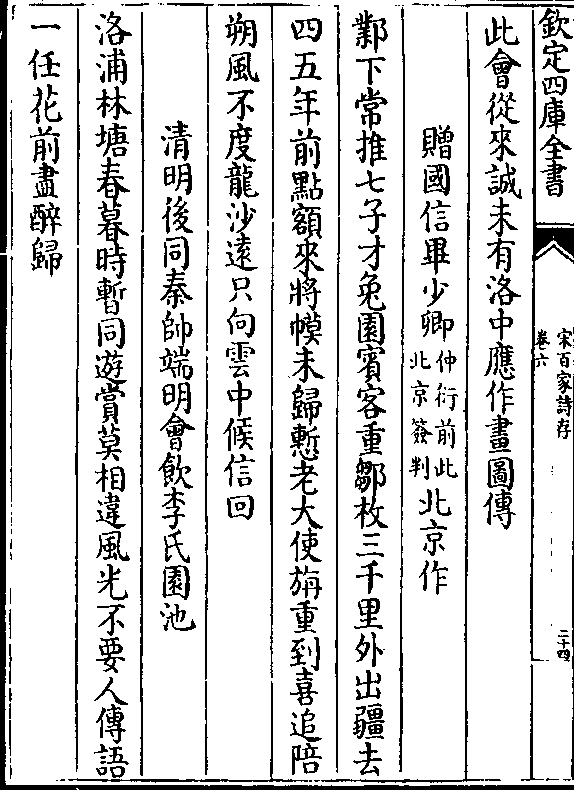 欽定四庫全書
宋百家詩存
卷六
二十四
此會從來誠未有洛中應作畫圖傳
贈國信畢少卿仲衍前此北京簽判北京作
鄴下常推七子才兔園賓客重鄒枚三千里外出疆去
四五年前點額來將幙未歸慙老大使旃重到喜追陪
朔風不度龍沙遠只向雲中候信回
清明後同秦帥端明會飲李氏園池
洛浦林塘春暮時暫同遊賞莫相違風光不要人傳語
一任花前盡醉歸